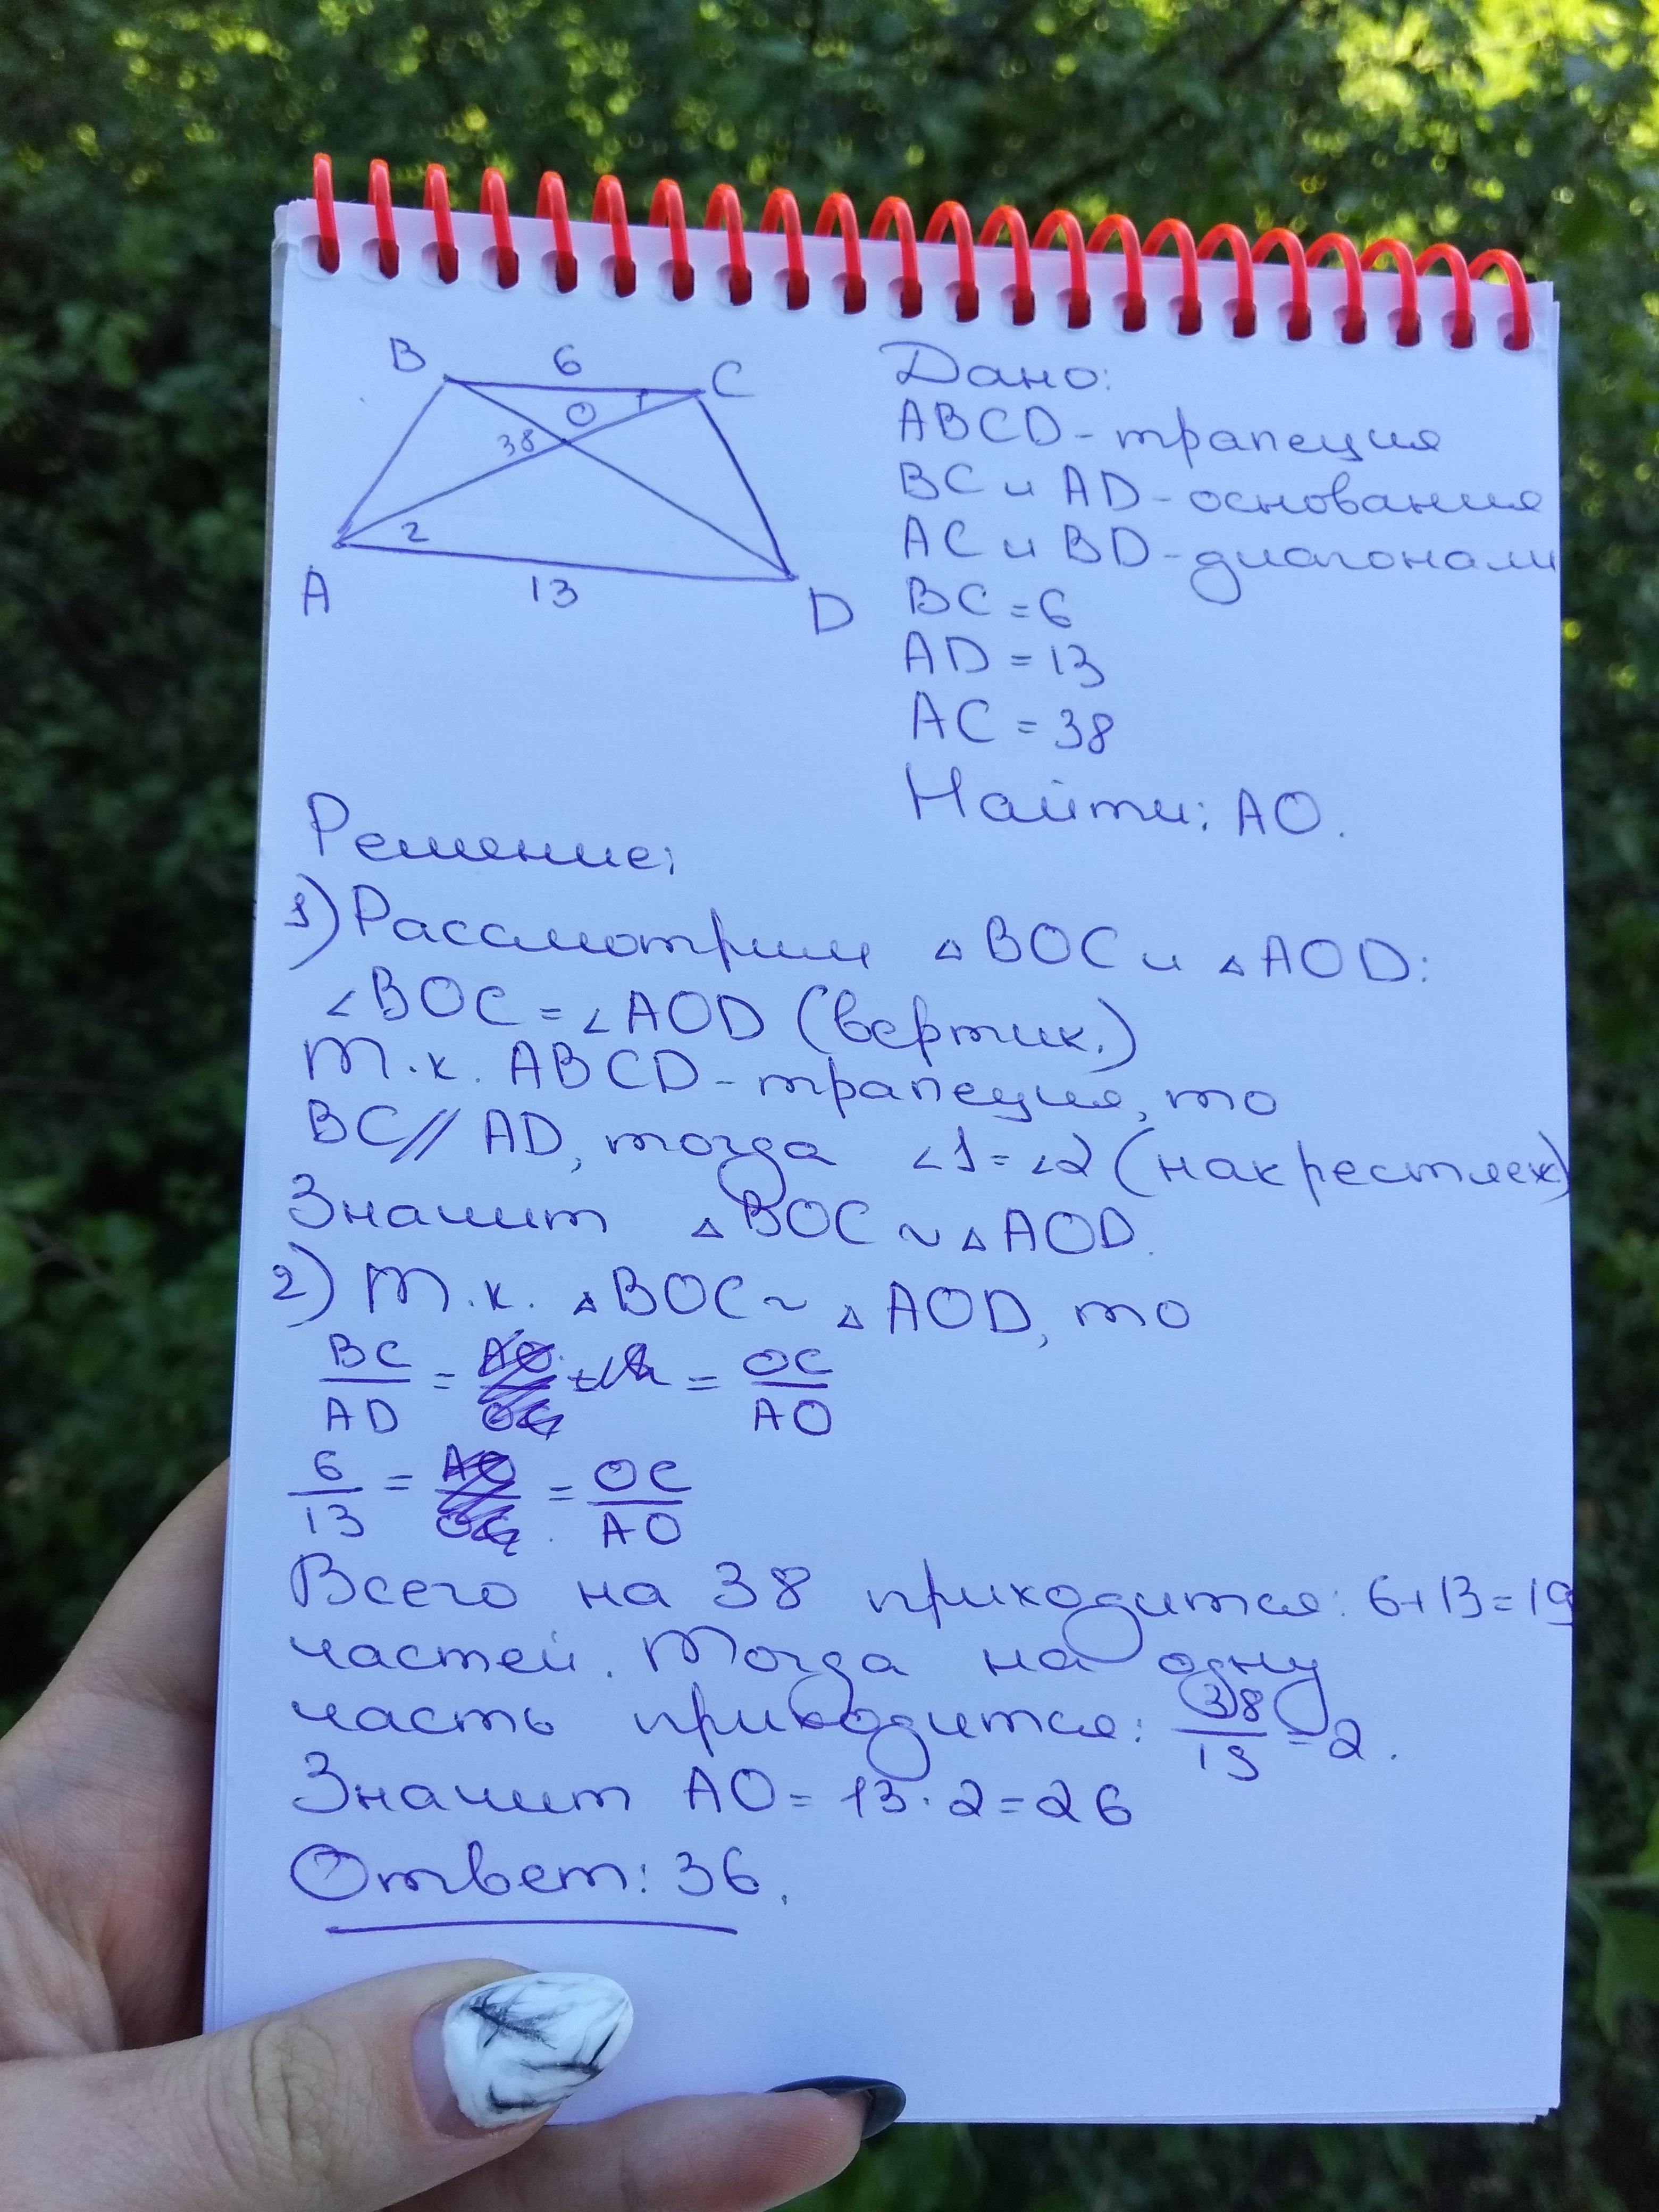 B 6 C
O 1
38
2
A 13 D
Дано:
ABCD - трапеция
BC и AD - основания
AC и BD - диагонали
BC = 6
AD = 13
AC = 38
Найти: AO.
Решение:
1) Рассмотрим △BOC и △AOD:
∠BOC = ∠AOD (вертик.)
Т.к. ABCD - трапеция, то
BC // AD, тогда ∠1 = ∠2 (накрестлеж)
Значит △BOC ~ △AOD.
2) Т.к. △BOC ~ △AOD, то
BC/AD = = OC/AO
6/13 = = OC/AO
Всего на 38 приходится: 6+13=19
частей. Тогда на одну
часть приходится: 38/19 = 2.
Значит AO = 13 · 2 = 26
Ответ: 36.